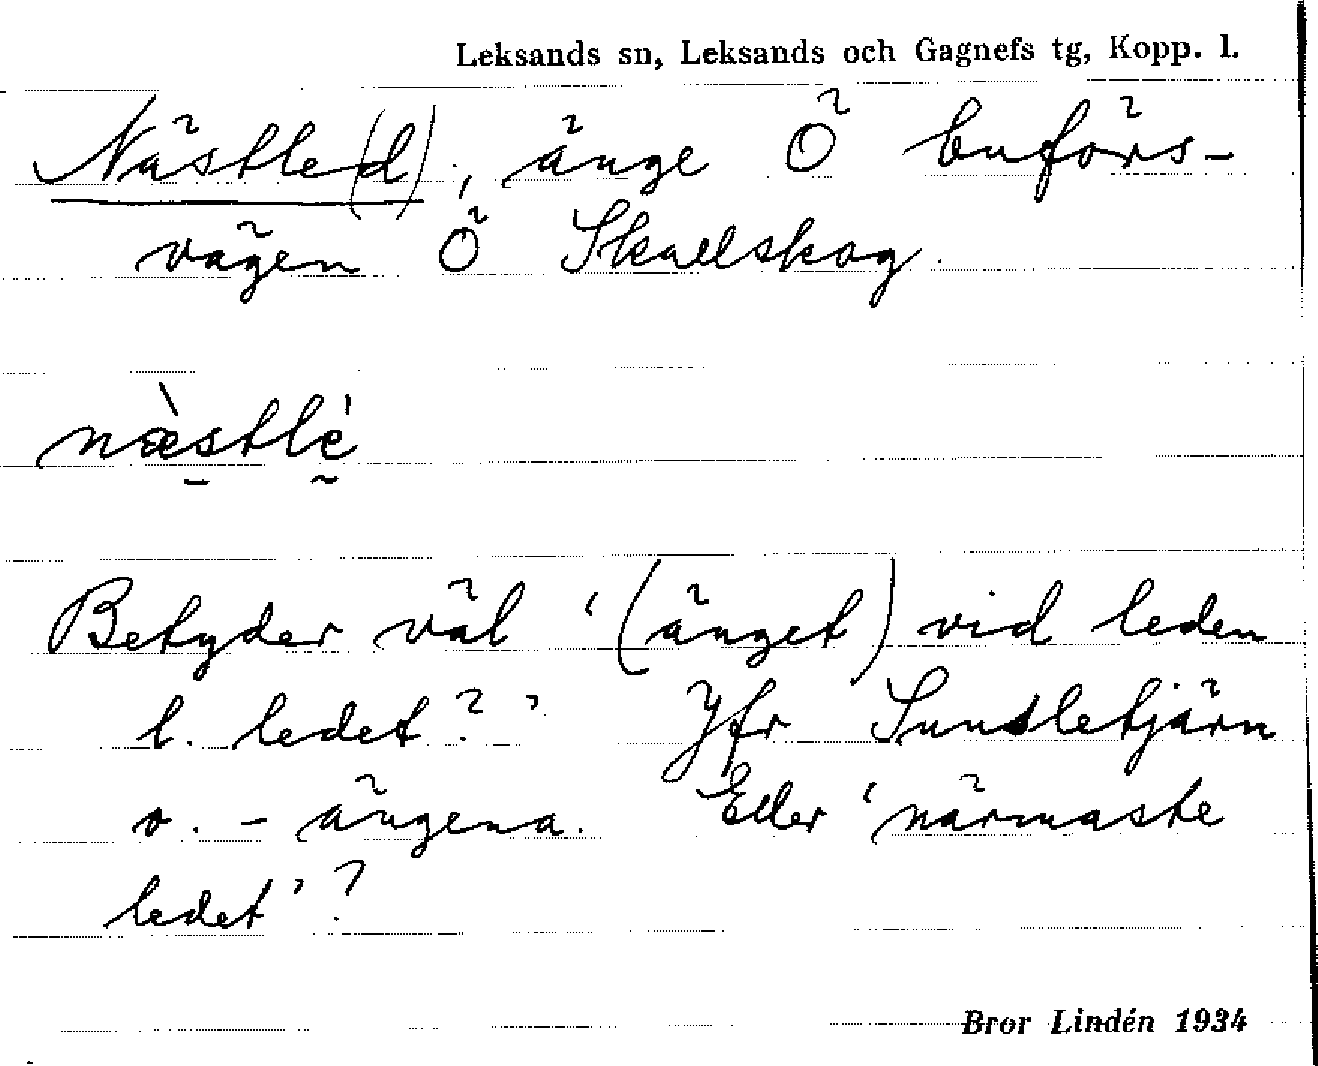 Leksands sn, Leksands och Gagnefs tg, Kopp. l.
Nästle(d), änge Ö buförs-
vägen Ö Skallskog.
næ̀stlè
Betyder väl '(änget) vid leden
l. ledet?' Jfr Sundletjärn
o. -ängena. Eller 'närmaste
ledet'?
Bror Lindén 1934